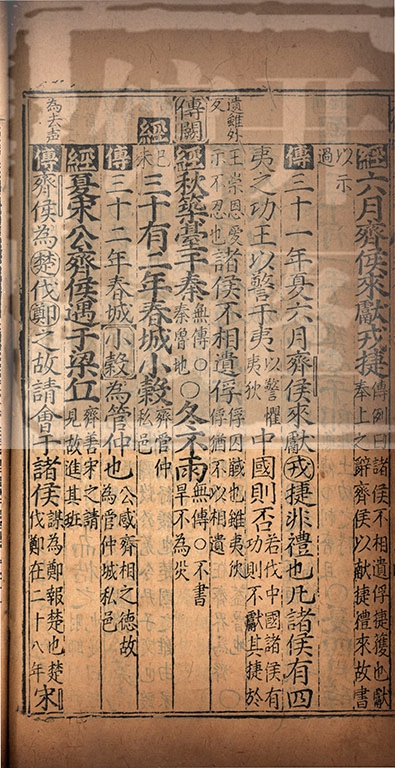 經六月齊侯來獻戎捷
傳例曰諸侯不相遺俘捷獲也獻
奉上之辭齊侯以獻捷禮來故書
以示
過
傳三十一年夏六月齊侯來獻戎捷非禮也凡諸侯有四
夷之功王以警于夷
以警懼
夷狄
中國則否
若代中國諸侯有
功則不獻其捷於
遺雖外
反
王崇恩愛
示不忍也
諸侯不相遺俘
俘囚馘也雖夷狄
俘猶不以相遺
傳闕
經秋築臺于秦
無傳○
秦魯地
○冬不雨
無傳○不書
旱不為災
經
己未
三十有二年春城小穀
齊管仲
私邑
傳三十二年春城小穀為管仲也
公感齊相之德故
為管仲城私邑
經夏宋公齊侯遇于梁丘
齊善宋之請
見故進其班
為夫声
傳齊侯為楚伐鄭之故請會于諸侯
謀為鄭報楚也楚
伐鄭在二十八年
宋